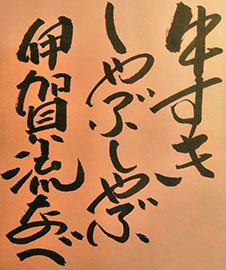 牛すき
しゃぶしゃぶ
伊賀流なべ